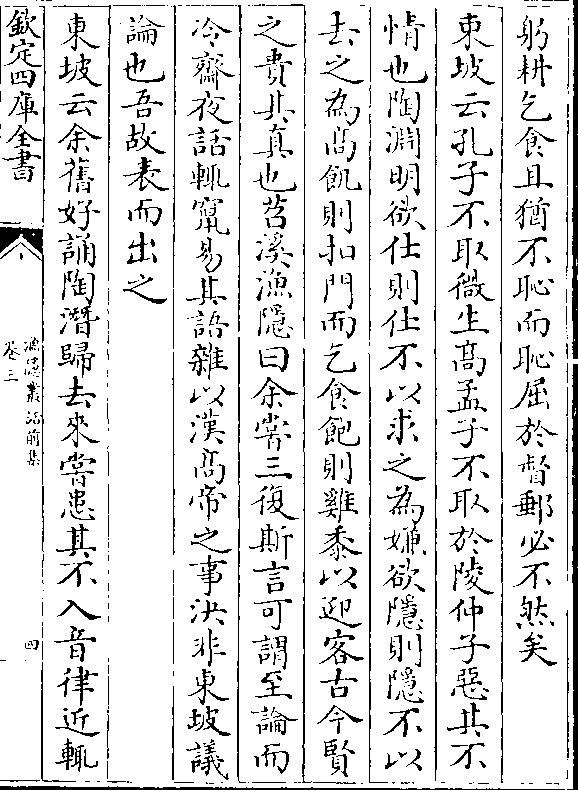 躬耕乞食且猶不恥而恥屈於督郵必不然矣
東坡云孔子不取微生髙孟子不取於陵仲子惡其不
情也陶淵明欲仕則仕不以求之為嫌欲隱則隱不以
去之為髙飢則扣門而乞食飽則雞黍以迎客古今賢
之貴其真也苕溪漁隱曰余嘗三復斯言可謂至論而
冷齋夜話輒竄易其語雜以漢髙帝之事決非東坡議
論也吾故表而出之
東坡云余舊好誦陶潛歸去來嘗患其不入音律近輒
欽定四庫全書
漁隱叢話前集
卷三
四